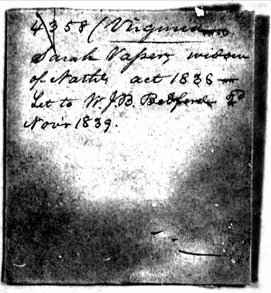 4358 (Virginia
Sarah Vasser, widow
of Nathl. act 1838 —
Let to W. J. B. Bedford
Novr 1839.